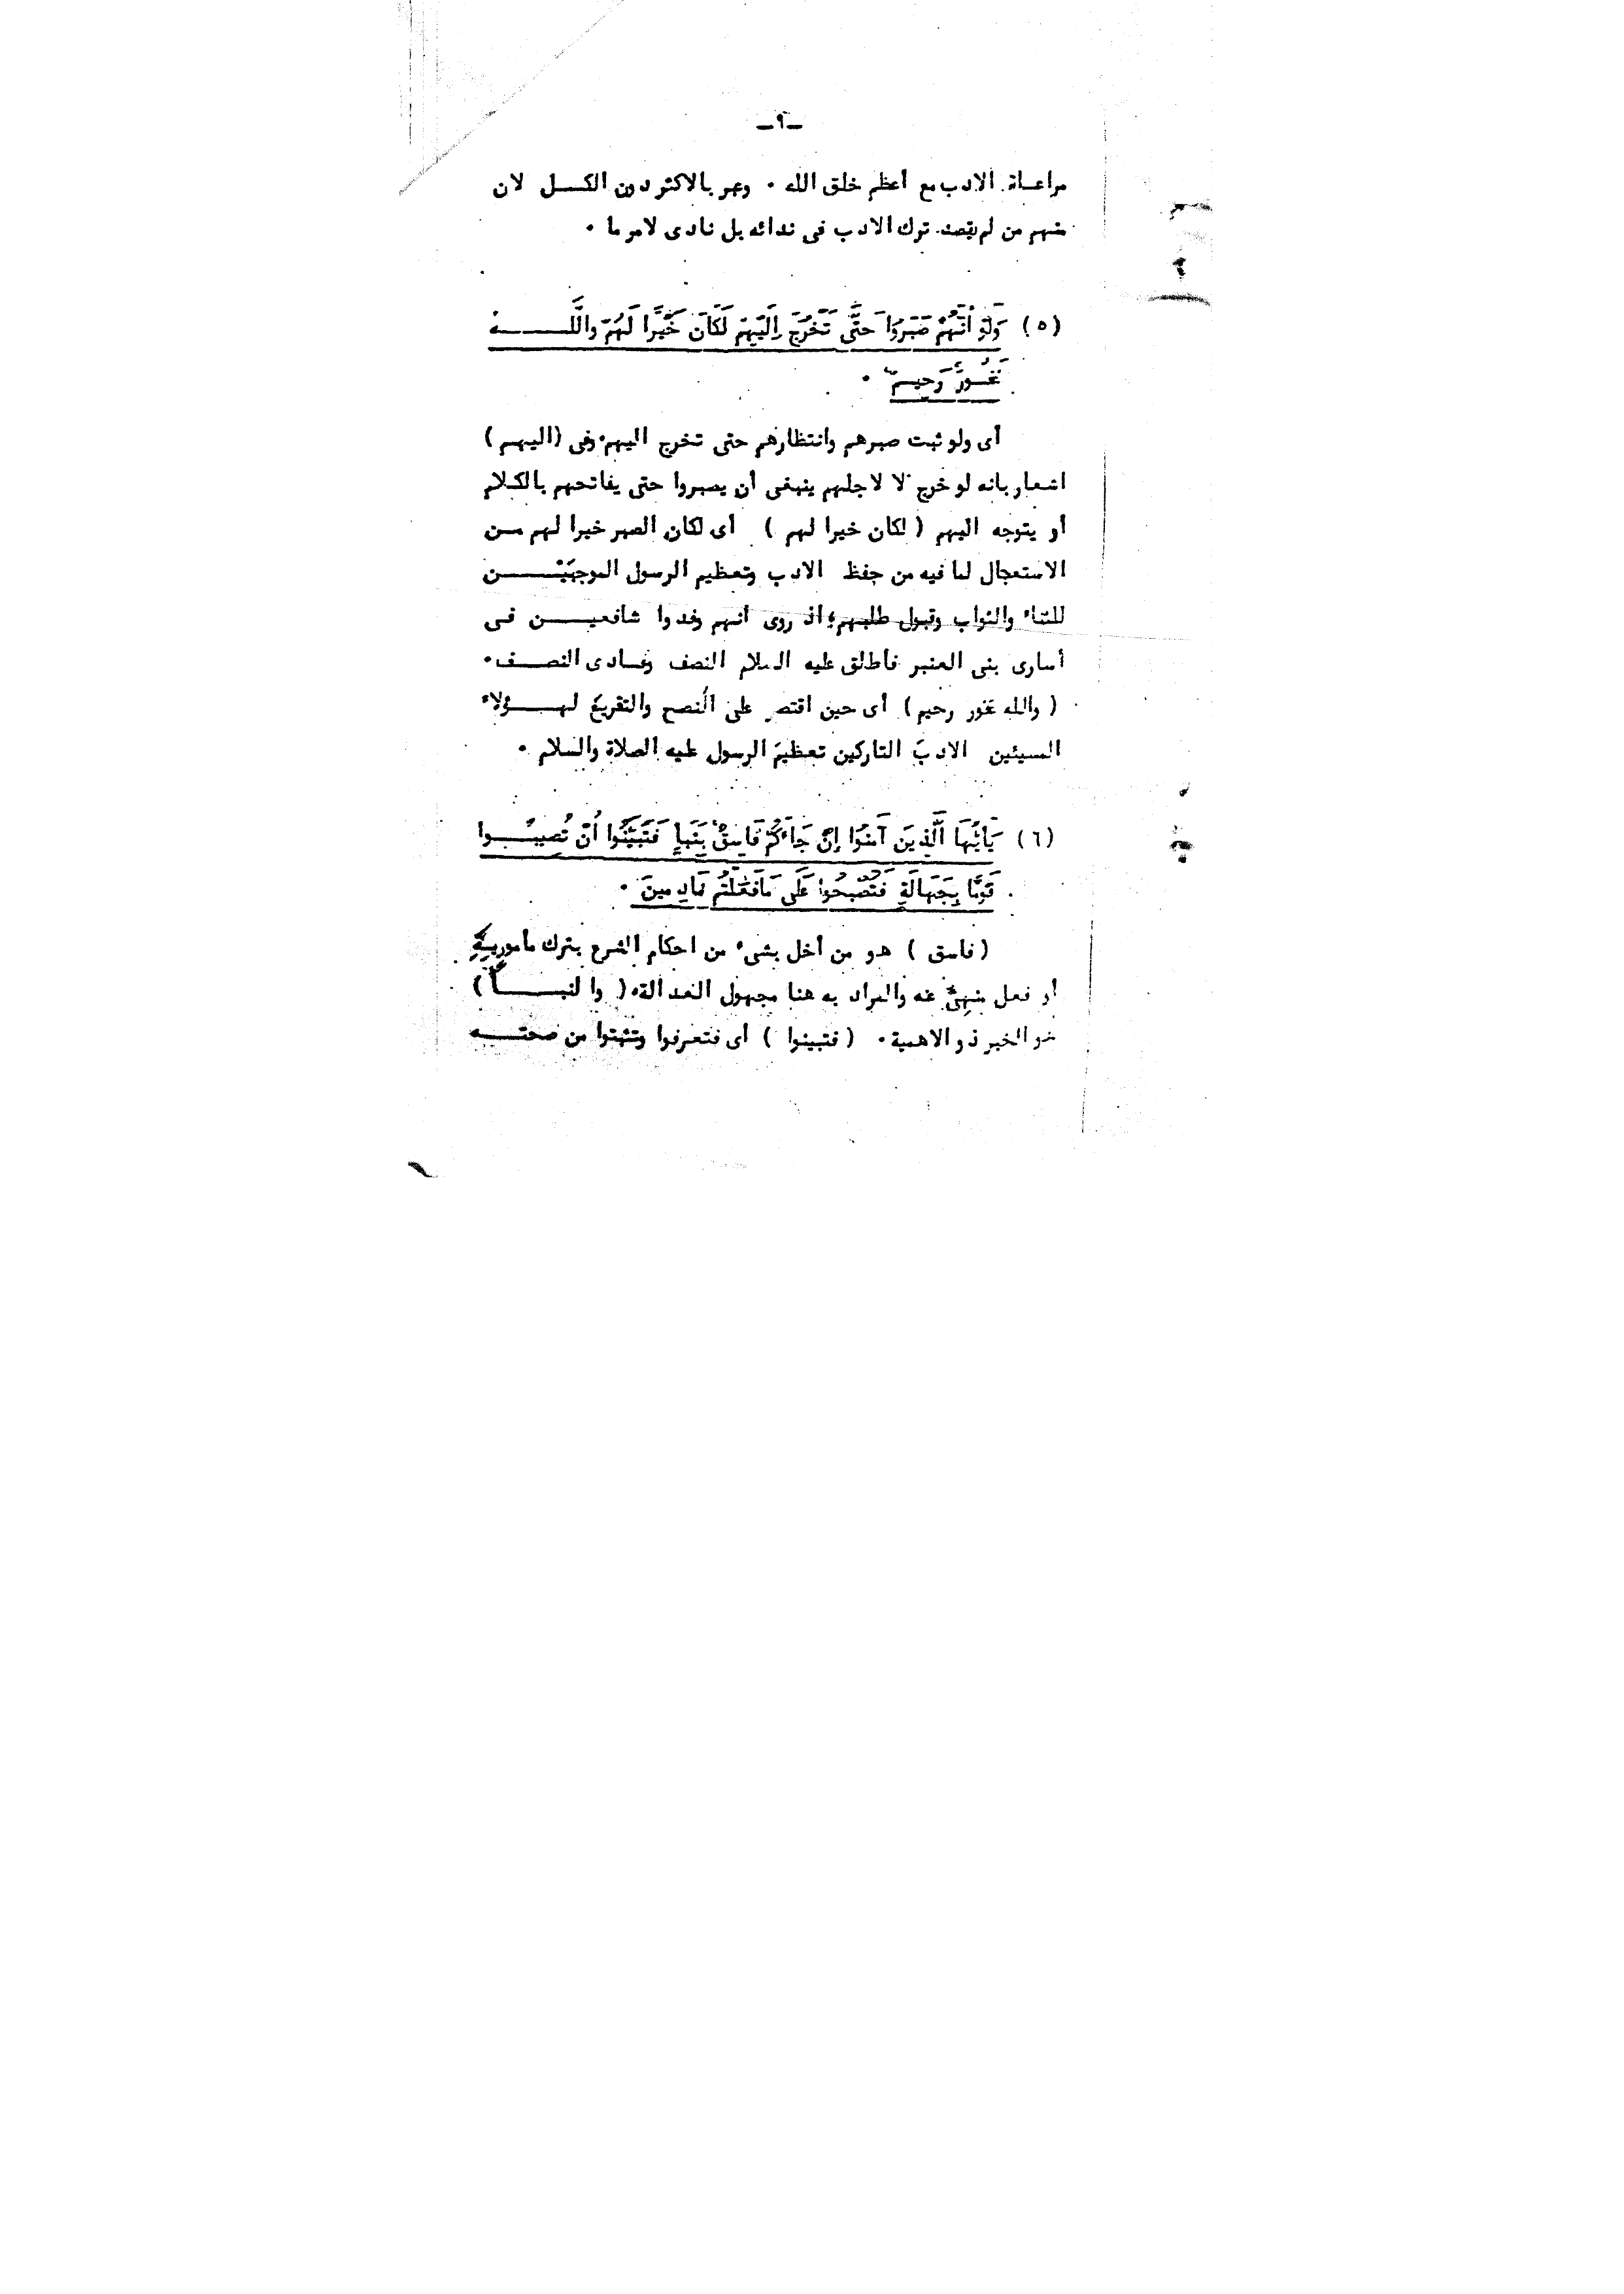 ـ٩ـ
مراعاة الادب مع أعظم خلق الله ٠ وعبر بالاكثر دون الكـــل لان
منهم من لم يقصد ترك الادب فى ندائه بل نادى لامر ما ٠
(٥) وَلَوْ أَنَّهُمْ صَبَرُوا حَتَّى تَخْرُجَ إِلَيْهِمْ لَكَانَ خَيْرًا لَهُمْ وَاللَّـــــهُ
غَفُورٌ رَحِيمٌ ٠
أى ولو ثبت صبرهم وانتظارهم حتى تخرج اليهم ٠ وفى (اليهم)
اشعار بانه لو خرج لا لاجلهم ينبغى أن يصبروا حتى يفاتحهم بالكلام
أو يتوجه اليهم ( لكان خيرا لهم ) أى لكان الصبر خيرا لهم مــن
الاستعجال لما فيه من حفظ الادب وتعظيم الرسول الموجبَيْـــــن
للثناء والثواب وقبول طلبهم؛ اذ روى انهم وفدوا شافعيـــــن فى
أسارى بنى العنبر فأطلق عليه السلام النصف وفـادى النصــف ٠
( والله غفور رحيم ) أى حين اقتصر على النصح والتقريع لهـــؤلاء
المسيئين الادبَ التاركين تعظيمَ الرسول عليه الصلاة والسلام ٠
(٦) يَأَيُّهَا الَّذِينَ آمَنُوا إِنْ جَاءَكُمْ فَاسِقٌ بِنَبَإٍ فَتَبَيَّنُوا أَنْ تُصِيبُـــوا
قَوْمًا بِجَهَالَةٍ فَتُصْبِحُوا عَلَى مَا فَعَلْتُمْ نَادِمِينَ ٠
( فاسق ) هو من أخل بشىء من احكام الشرع بترك مأمور بِهِ
أو فعل منهىٍّ عنه والمراد به هنا مجهول العدالة ٠ ( والنبـــــأ )
هو الخبر ذو الاهمية ٠ ( فتبينوا ) أى فتعرفوا وتثبتوا من صحتـــه